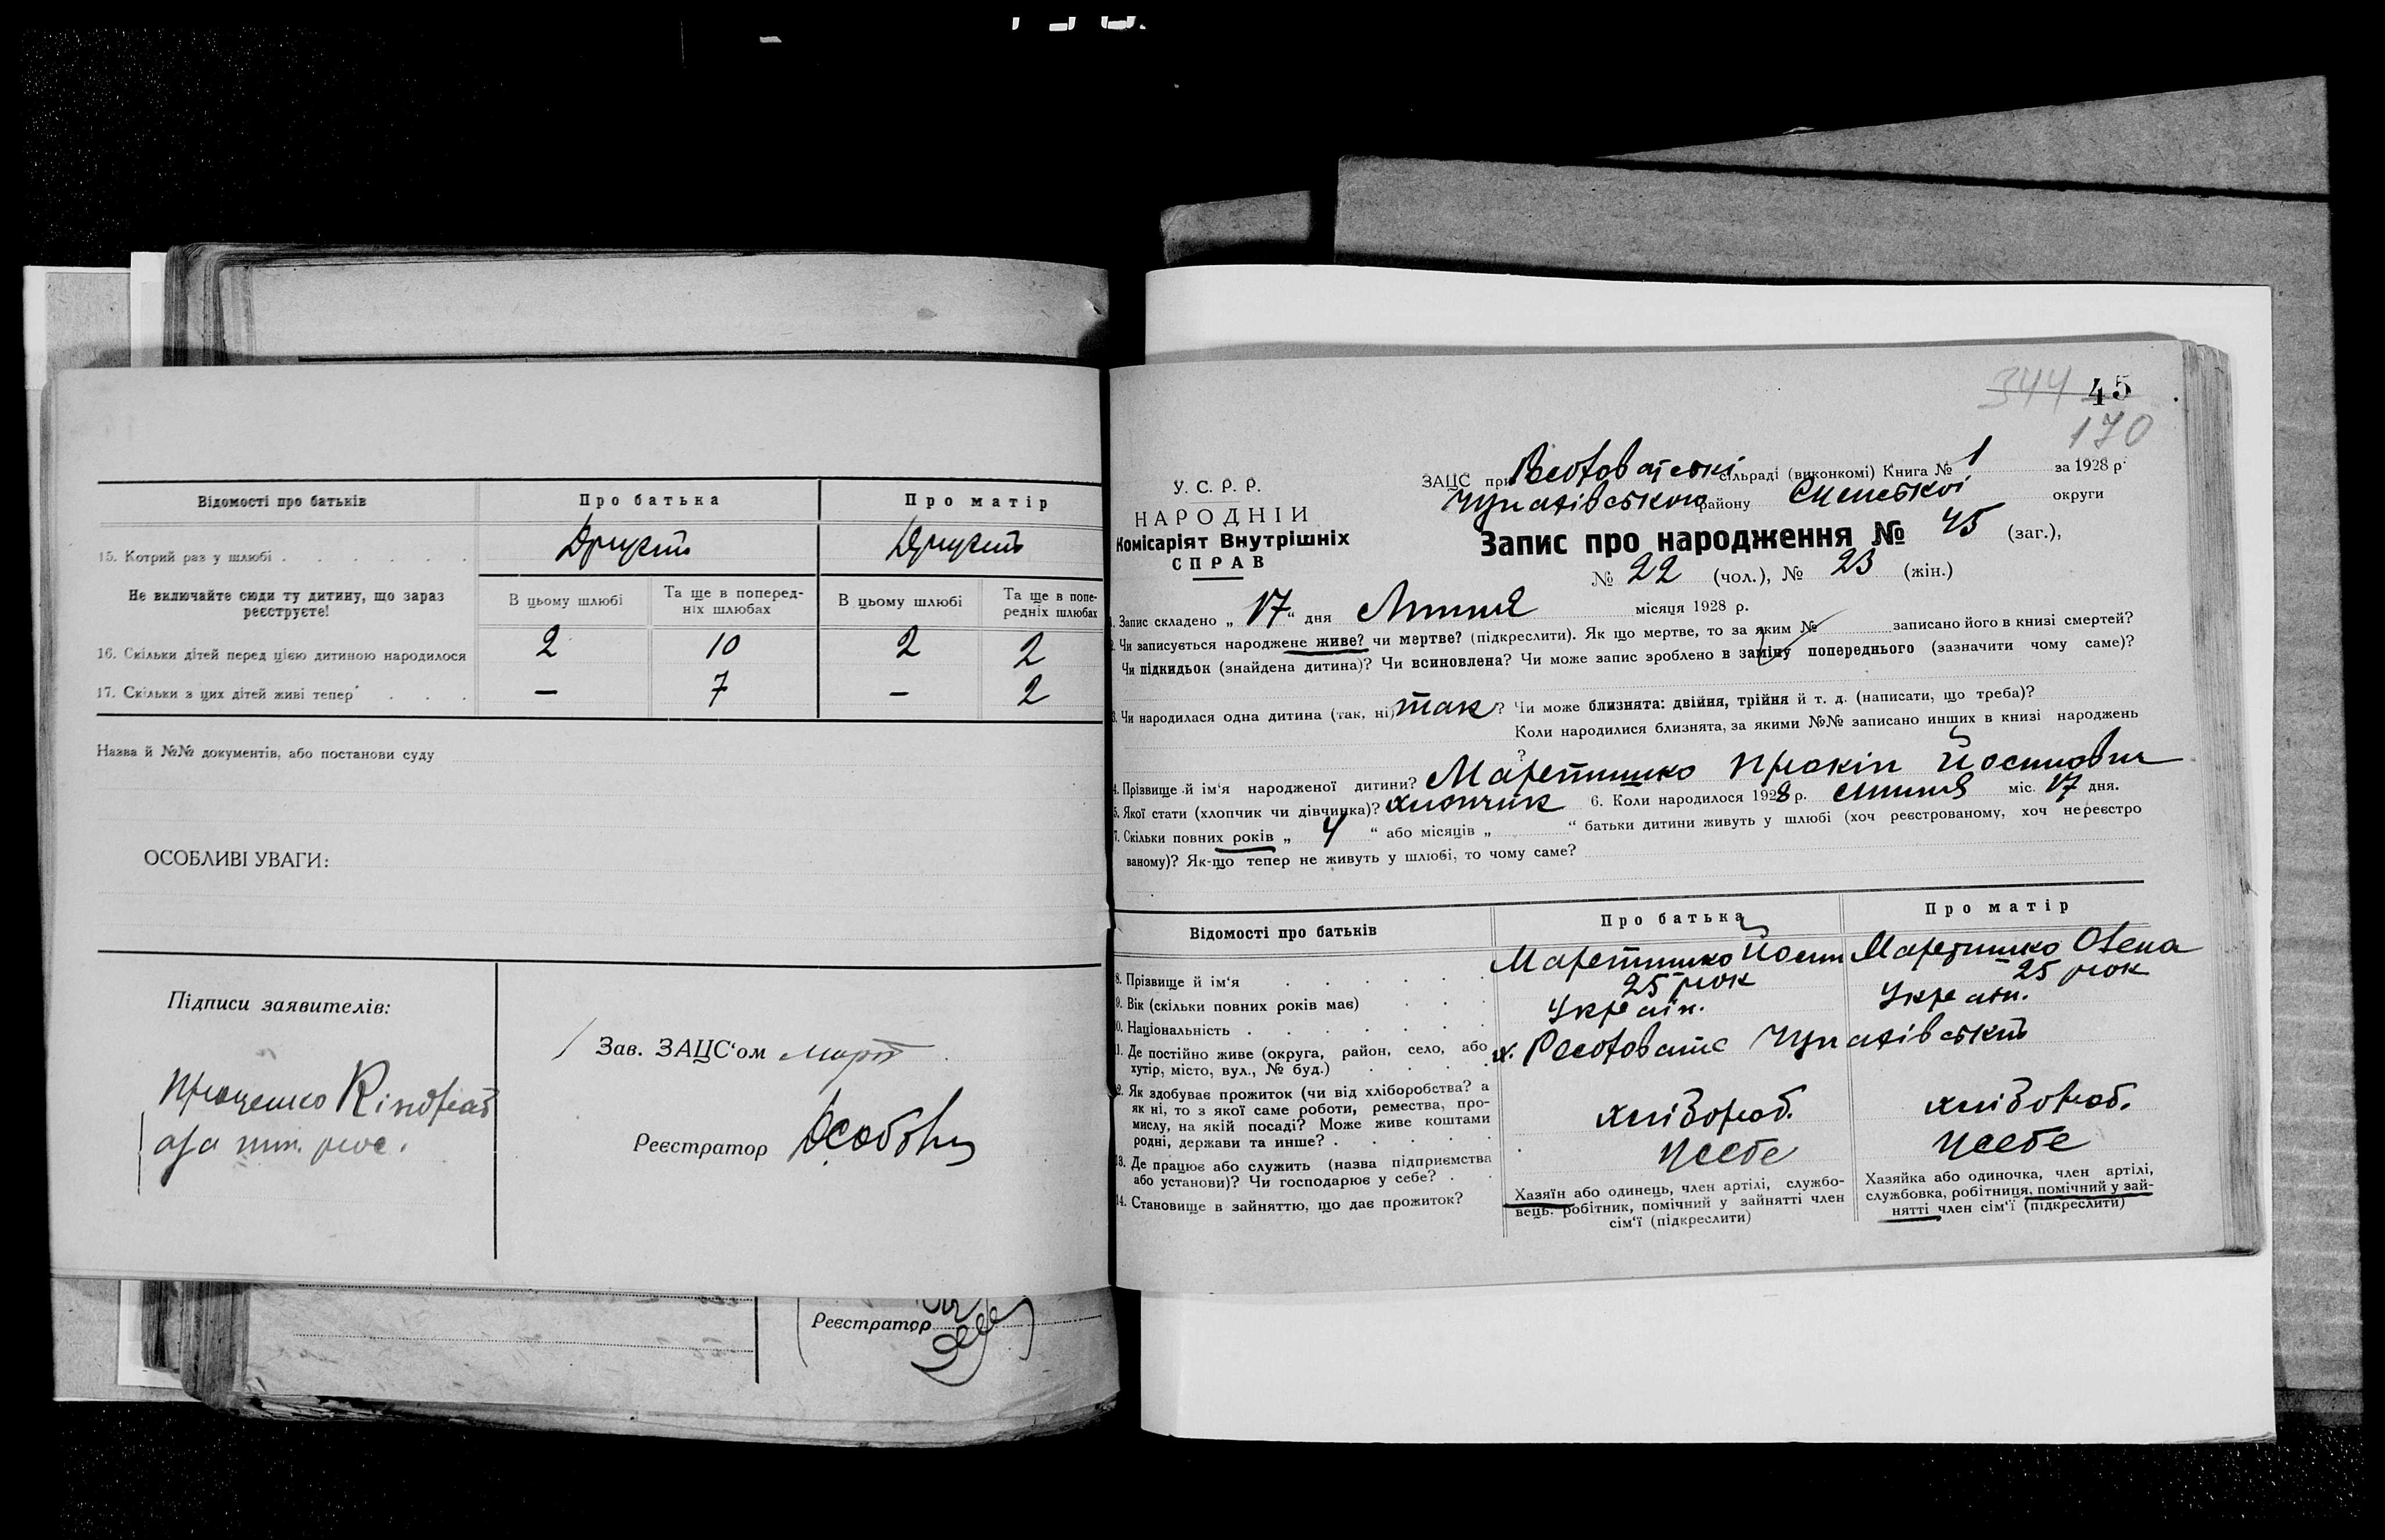 Відомості про батьків
Про батька
Про матір
15. Котрий раз у шлюбі
Другий
Другий
Не включайте сюди ту дитину, що зараз реєструєте!
В цьому шлюбі
Та ще в попередніх шлюбах
В цьому шлюбі
Та ще в попередніх шлюбах
16. Скільки дітей перед цією дитиною народилося
2
10
2
2
17. Скільки з цих дітей живі тепер
—
7
—
2
Назва й №№ документів, або постанови суду
ОСОБЛИВІ УВАГИ:
Підписи заявителів:
Зав. ЗАЦС'ом
Реєстратор
Реєстратор
344 45
170
У. С. Р. Р.
НАРОДНІЙ
Комісаріят Внутрішніх
СПРАВ
ЗАЦС при сільраді (виконкомі) Книга № 1 за 1928 р.
району округи
Запис про народження № 45 (заг.),
№ 22 (чол.), № 23 (жін.)
1. Запис складено „ 17 “ дня Липня місяця 1928 р.
2. Чи записується народжене живе? чи мертве? (підкреслити). Як що мертве, то за яким № записано його в книзі смертей?
Чи підкидьок (знайдена дитина)? Чи всиновлена? Чи може запис зроблено в заміну попереднього (зазначити чому саме)?
3. Чи народилася одна дитина (так, ні) так ? Чи може близнята: двійня, трійня й т. д. (написати, що треба)?
Коли народилися близнята, за якими №№ записано инших в книзі народжень
?
4. Прізвище й ім'я народженої дитини? Прокіп Йосипович
5. Якої стати (хлопчик чи дівчинка)? хлопчик 6. Коли народилося 1928 р. Липня міс. 17 дня.
7. Скільки повних років „ 4 “ або місяців „ “ батьки дитини живуть у шлюбі (хоч реєстрованому, хоч нереєстро
ваному)? Як-що тепер не живуть у шлюбі, то чому саме?
Відомості про батьків
Про батька
Про матір
8. Прізвище й ім'я
Йосип
9. Вік (скільки повних років має)
25 рок
25 рок
10. Національність
Україн.
Україн.
11. Де постійно живе (округа, район, село, або
хутір, місто, вул., № буд.)
х.
12. Як здобуває прожиток (чи від хліборобства? а
як ні, то з якої саме роботи, ремества, про-
мислу, на якій посаді? Може живе коштами
родні, держави та инше?
хлібороб.
хлібороб.
13. Де працює або служить (назва підприємства
або установи)? Чи господарює у себе?
у себе
у себе
14. Становище в зайняттю, що дає прожиток?
Хазяїн або одинець, член артілі, службо-
вець, робітник, помічний у зайнятті член
сім'ї (підкреслити)
Хазяйка або одиночка, член артілі,
службовка, робітниця, помічний у зай-
нятті член сім'ї (підкреслити)